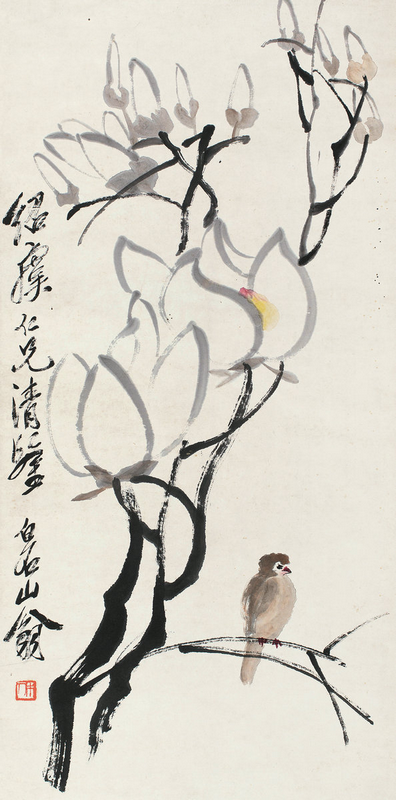 紹仁兄清鑒 白石山翁